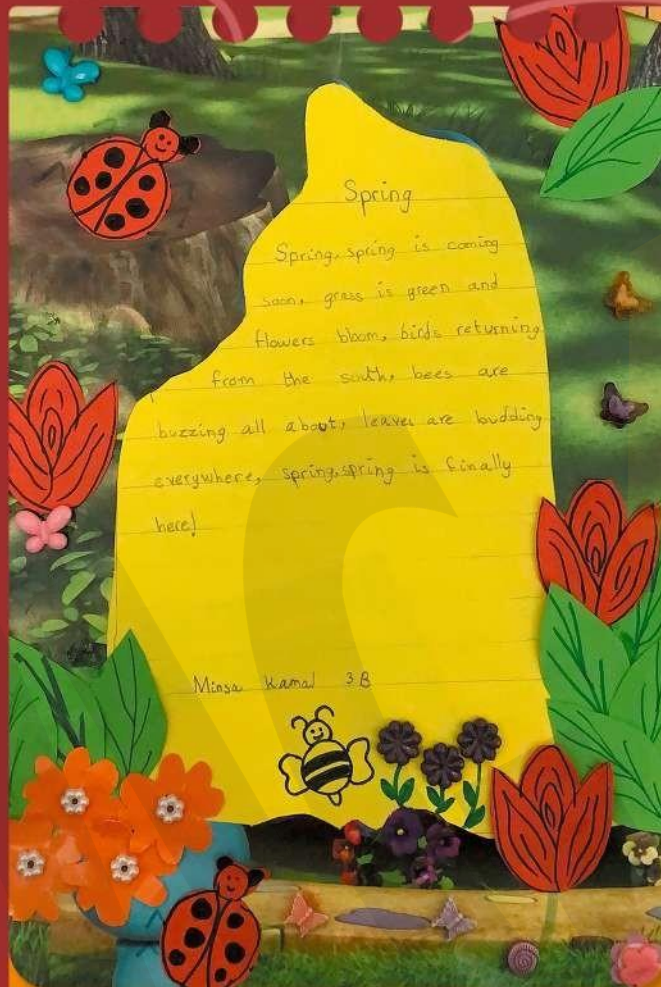 Spring
Spring, spring is coming
soon, grass is green and
flowers bloom, birds returning
from the south, bees are
buzzing all about, leaves are budding
everywhere, spring, spring is finally
here!
Minsa Kamal 3B